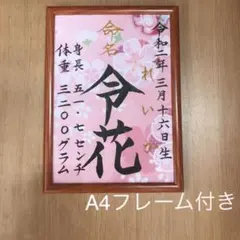 令和二年三月十六日生
命名
れいか
令花
身長 五一・七センチ
体重 三二〇〇グラム
A4フレーム付き